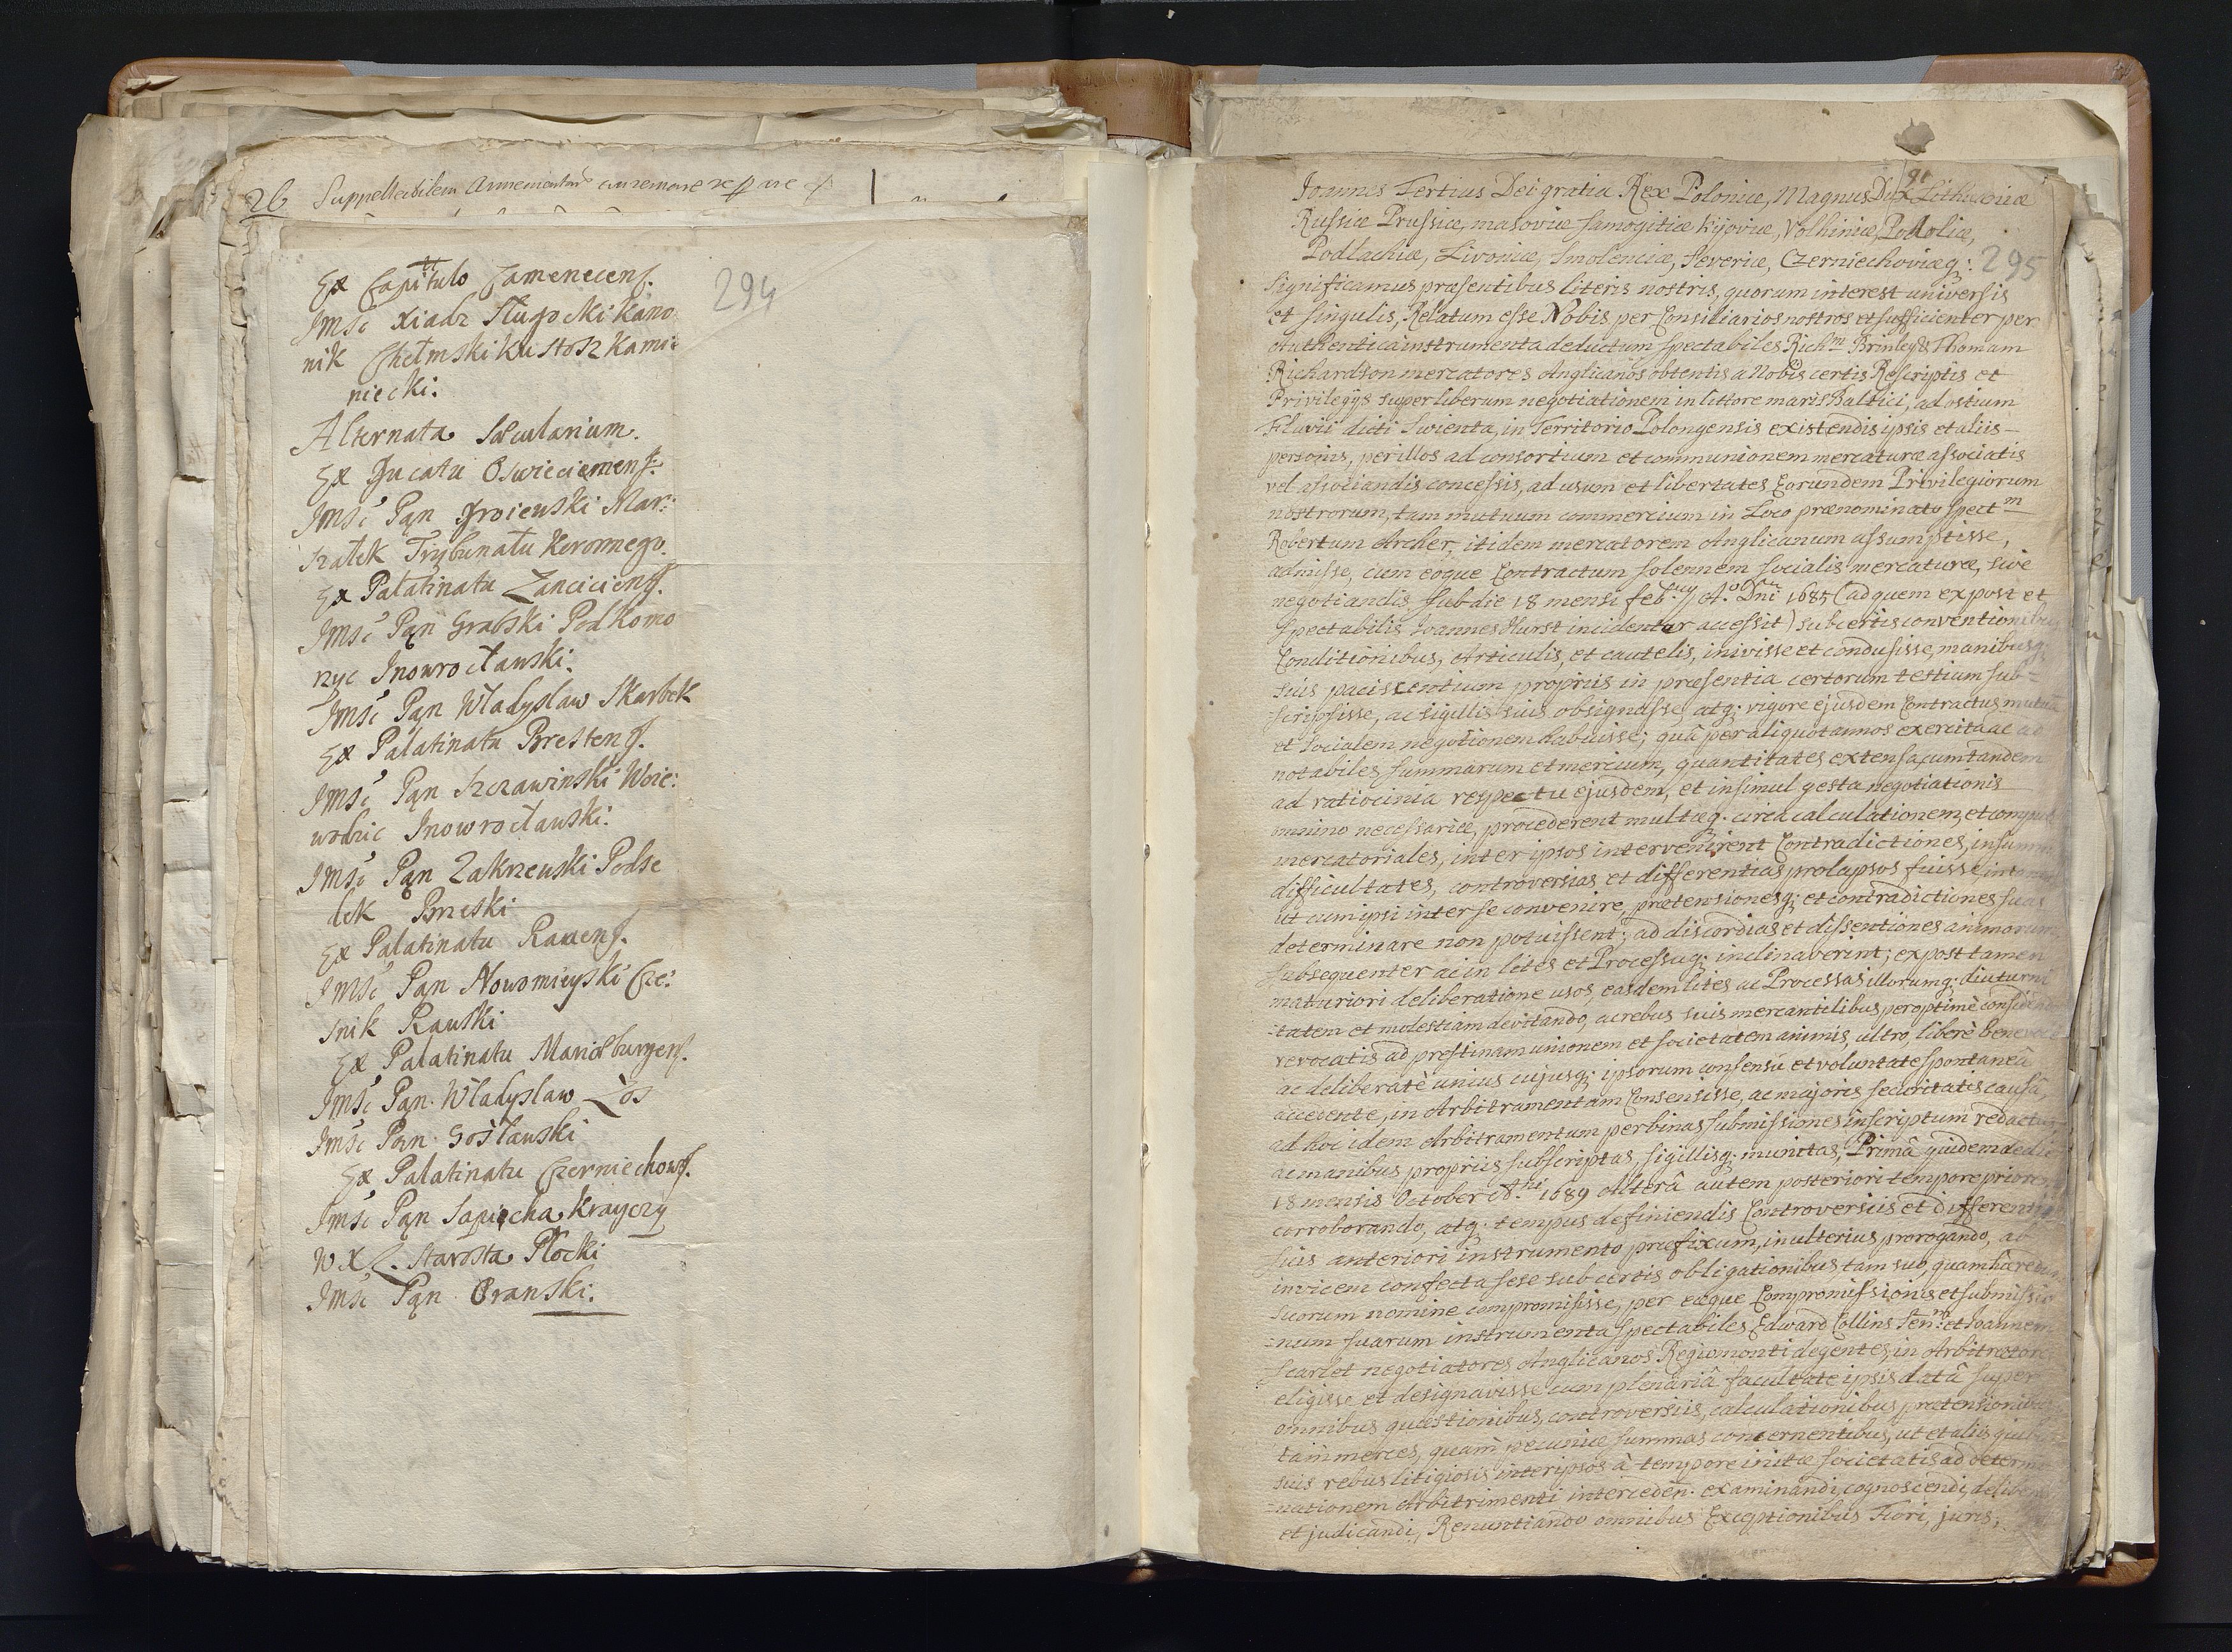 26 Suppellectilem Armementar
294
Ex Capitulo Camenecens.
Jmsc xiadz Długocki Kano
nik Chełmski Kustosz Kami:
niecki.
Alternata Sæcularium.
Ex Ducatu Oswiecimens.
Jmsc Pan Groiewski Mar:
szałek Trybunału Koronnego.
Ex Palatinatu Lanciciens.
Jmsc Pan Grabski Podkomo
rzyc Inowrocławski.
Jmsc Pan Władysław Skarbek
Ex Palatinatu Brestens.
Jmsc Pan Szczawinski Woie:
wodzic Inowrocławski.
Jmsc Pan Zakrzewski Podse
dek Brzeski
Ex Palatinatu Ravens.
Jmsc Pan Nowomieyski Cze:
snik Rawski
Ex Palatinatu Marieburgens.
Jmsc Pan Władysław Łos
Jmsc Pan Gosławski
Ex Palatinatu Czerniechows.
Jmsc Pan Sapiecha Krayczy
W X L. Starosta Płocki
Jmsc Pan Oranski.
295
Joannes Tertius Dei gratia Rex Poloniæ, Magnus Dux Lithuaniæ
Russiæ Prussiæ, masoviæ Samogitiæ Kijoviæ, Volhiniæ, Podoliæ,
Podlachiæ, Livoniæ, Smolenciæ, Severiæ, Czerniechoviæq:
Significamus præsentibus literis nostris, quorum interest universis
et singulis, Relatum esse Nobis per Consiliarios nostros et sufficienter per
Authentica instrumenta deductum, spectabiles Richm Brinley & Thomam
Richardson mercatores Anglicanos obtentis a Nobis certis Rescriptis et
Privilegys super liberum negotiationem in littore maris Baltici, ad ostium
Fluvii dicti Swienta, in Territorio Polongensis existendis ipsis et aliis
personis, per illos ad consortium et communionem mercaturæ associatis
vel associandis concessis, ad usum et libertates Eorundem Privilegiorum
nostrorum, tam mutuum commercium in Loco prænominato spectm
Robertum Archer, itidem mercatorem Anglicanum assumptisse,
admisse, cum eoque Contractum solennem socialis mercaturæ, sive
negotiandis, sub die 18 mensi febr:ry Ao. Dni 1685 (ad quem ex post et
Spectabilis Joannes Hurst incidenter accessit) sub certis conventionibus
Conditionibus, Articulis, et cautelis, inivisse et condusisse, manibusq;
suis paciscentium propriis in præsentia certorum testium sub=
=scripsisse, ac sigillis suis obsignasse, atq; vigore ejusdem Contractus mutua
et socialem negotionem habuisse; quâ per aliquot annos exercita ac ad
notabiles summarum et mercium, quantitates extensa, cum tandem
ad ratiocinia respectu ejusdem, et insimul gesta negotiationis
omnino necessariæ, procederent multæq; circa calculationem, et
mercatoriales, inter ipsos intervenirent Contradictiones, in
difficultates, controversias et differentias prolapsos fuisse
ut cum ipsi inter se convenire, prætensionesq; et contradictiones suas
determinare non potuissent; ad discordias et dissentiones animorum
subsequenter ac in lites et Processuq; inclinaverint; ex post tamen
maturiori deliberatione usos, easdem lites ac Processas illorumq; diuturni
=tatem et molestiam devitando, ac rebus suis mercantilibus peroptime
revocatis ad prestinam unionem et societatem animis, ultro, libere
ac deliberatè unius cujusq; ipsorum consensu et voluntate spontaneâ
accedente, in Arbitramentam Consensisse, ac majoris securitatis causâ,
ad hoc idem Arbitramentum per binas submissiones inscriptum
ac manibus propriis subscriptas, sigillisq; munitas, Primâ quidem de die
18 mensis October A:ni 1689 Alterâ autem posteriori tempore
corroborando, atq; tempus definiendis Controversiis et differentiis
suis anteriori instrumento præfixum, in ulterius prorogando, ab
invicem confecta sese sub certis obligationibus, tam suo, quam hæredum
suorum nomine compromisisse, per eæque Compromissionis et submissio
=num suarum instrumenta spectabiles Edward Collins Senr: et Joannem
Scarlet negotiatores Anglicanos Regiomonti degentes, in Arbitratores
eligisse et designavisse cum plenariâ facultate ipsis datâ super
omnibus quæstionibus, controversiis, calculationibus, prætensionibus
tam merces, quam pecuniæ summas concernentibus, ut et aliis
suis rebus litigiosis inter ipsos à tempore initæ societatis ad
=nationem Arbitrimenti interceden: examinandi, cognoscendi,
et judicandi, Renuntiando omnibus Exceptionibus Fori, juris,